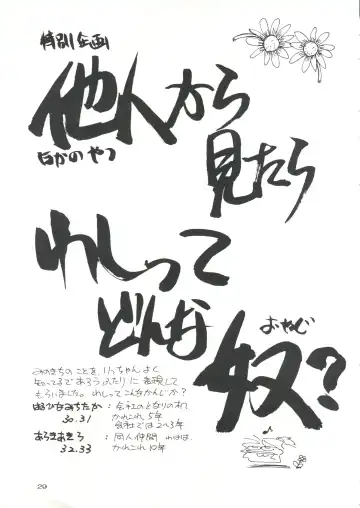 特別企画
他人から
ほかのやつ
見たら
わしって
どんな
おやじ
奴?
みのきちのことを、いっちゃんよく
知ってるであろうふたりに表現して
もらいました。わしってこんなかんじか?
はるひなみちたか : 会社のとなりの机
30.31 かれこれ5年
会社では2〜3年
あろまあきら : 同人仲間
32.33 かれこれ10年
29